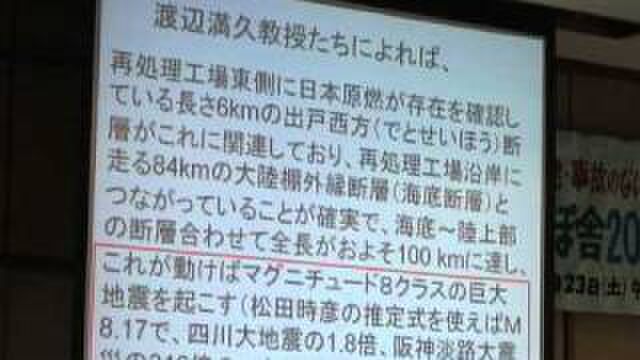 渡辺満久教授たちによれば、
再処理工場東側に日本原燃が存在を確認し
ている長さ6kmの出戸西方(でとせいほう)断
層がこれに関連しており、再処理工場沿岸に
走る84kmの大陸棚外縁断層(海底断層)と
つながっていることが確実で、海底～陸上部
の断層合わせて全長がおよそ100 kmに達し、
これが動けばマグニチュード8クラスの巨大
地震を起こす(松田時彦の推定式を使えばM
8.17で、四川大地震の1.8倍、阪神淡路大震
事故のな
ぽ舎20
23日(土)